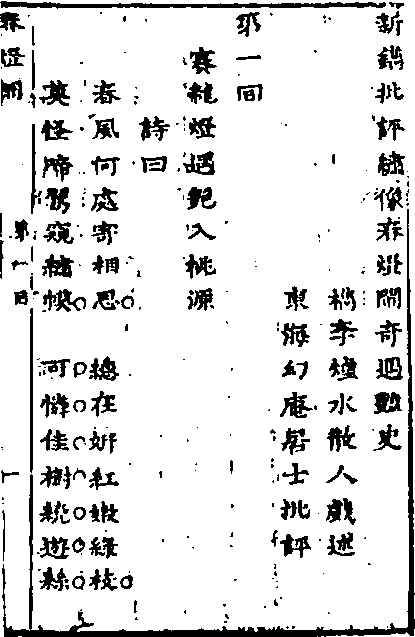 新鐫批評繡像春燈鬧奇遇艷史
檇李煙水散人戲述
東海幻庵居士批評
第一回
賽龍燈遇艷入桃源
詩曰
春風何處寄相思。總在妍紅嫩綠枝。
莫怪啼鶯窺繡幙。可。憐。佳。樹。繞。遊。絲。
春燈鬧 第一回 一